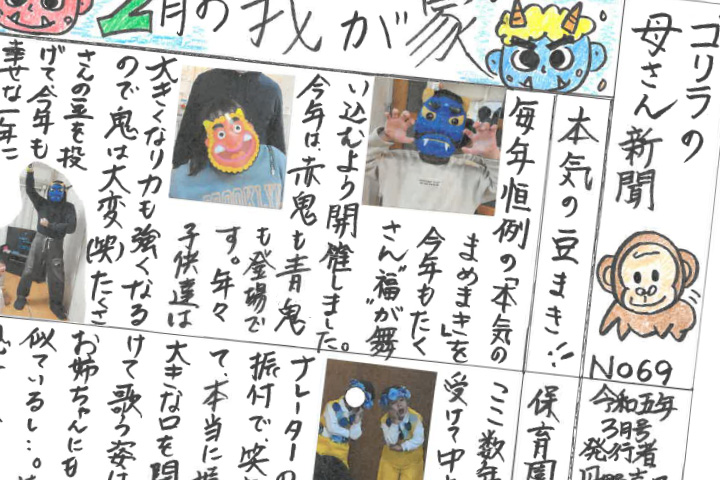 ゴリラの
母さん新聞
No69
令和五年
3月号
発行者
2月の我が家
本気の豆まき!!
毎年恒例の「本気の
まめまき」を
今年もたく
さん"福"が舞
い込むよう開催しました。
今年は、赤鬼も青鬼
も登場で
す。年々
子供達は
大きくなり力も強くなる
ので鬼は大変(笑)たくさ
さんの豆を投
げて今年も
幸せな一年に
保育園
ここ数年
受けて中
ナレーターの
振付で、笑
て、本当に
大きな口を開
けて歌う姿は
お姉ちゃんにも
似ているし…。